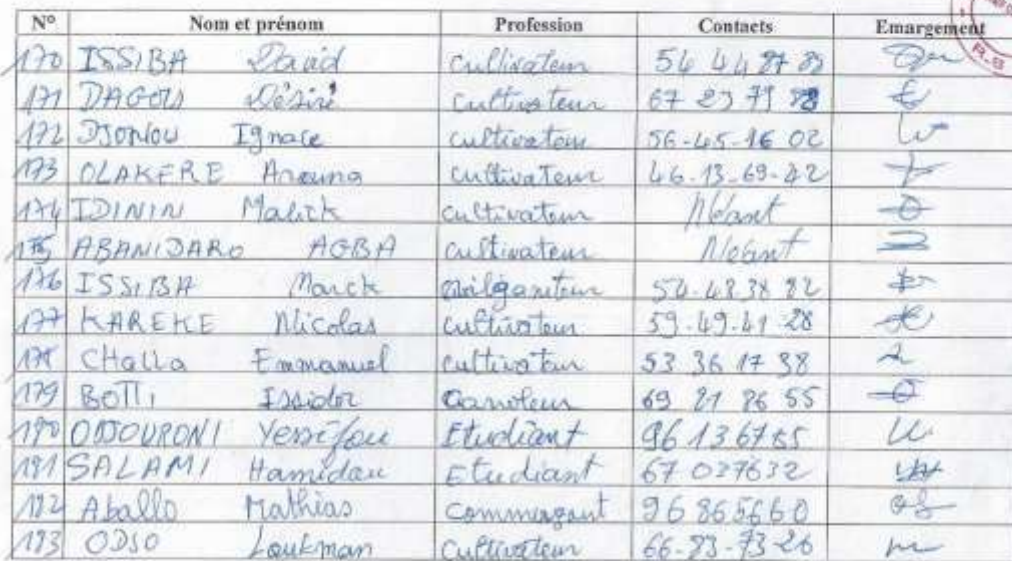 N° Nom et prénom Profession Contacts Emargement
170 ISSIBA David cultivateur 54 44 87 89
171 DAGOU Désiré cultivateur 67 23 79
172 DJONOU Ignace cultivateur 56-45-16 02
173 OLAKERE Arouna cultivateur 46-13-69-42
174 IDININ Malick cultivateur Néant
175 ABANIDARO AGBA cultivateur Néant
176 ISSIBA Marck 54-48 38 82
177 KAREKE Nicolas cultivateur 59-49-41-28
178 CHALLA Emmanuel cultivateur 53 36 17 38
179 BOTTI Issidor 69 21 86 55
180 ODJOURONI Yessifou Etudiant 96136785
181 SALAMI Hamidou Etudiant 67 037632
182 Aballo Mathias commerçant 96 865660
183 ODJO Loukman cultivateur 66-83-73-26